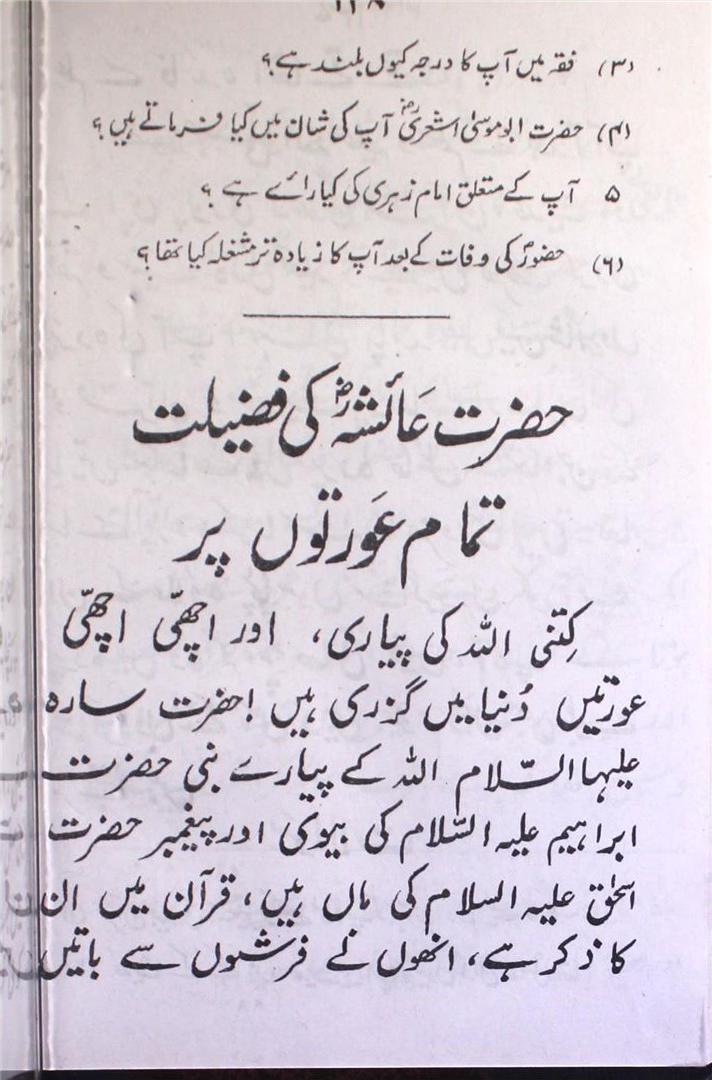 (۳) فقہ میں آپ کا درجہ کیوں بلند ہے؟
(۴) حضرت ابوموسیٰ اشعریؓ آپ کی شان میں کیا فرماتے ہیں؟
۵ آپ کے متعلق امام زہری کی کیا رائے ہے ؟
(۶) حضورؐ کی وفات کے بعد آپ کا زیادہ تر مشغلہ کیا تھا؟
حضرت عَائشہؓ کی فضیلت
تمام عَورتوں پر
کِتنی اللہ کی پیاری، اور اچھّی اچھّی
عورتیں دُنیا میں گزری ہیں! حضرت سارہ
علیہا السّلام اللہ کے پیارے نبی حضرت
ابراہیم علیہ السّلام کی بیوی اور پیغمبر حضرت
اسحٰق علیہ السلام کی ماں ہیں، قرآن میں ان
کا ذکر ہے، انھوں نے فرشتوں سے باتیں